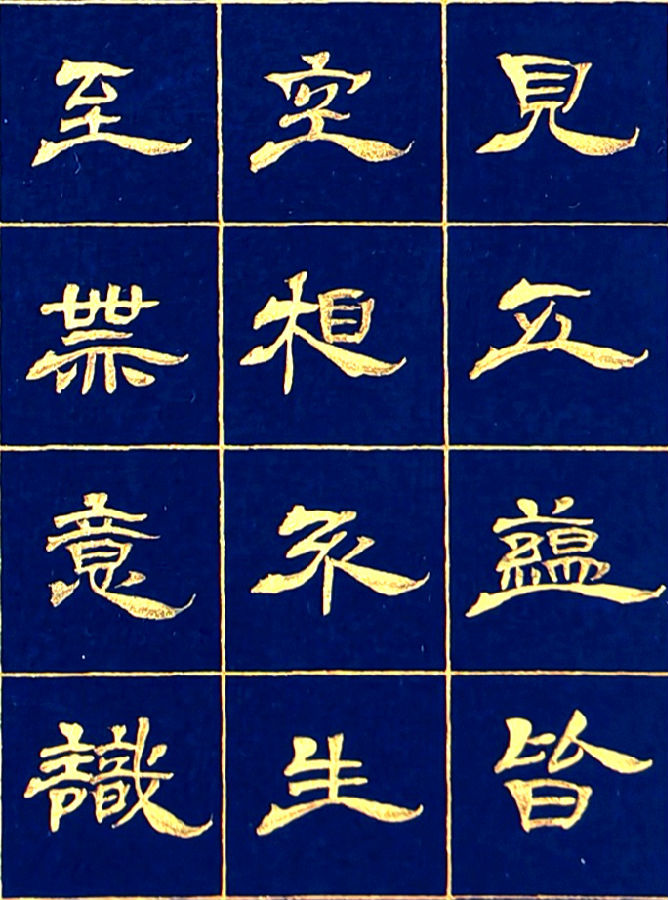 見五蘊皆
空相不生
至無意識